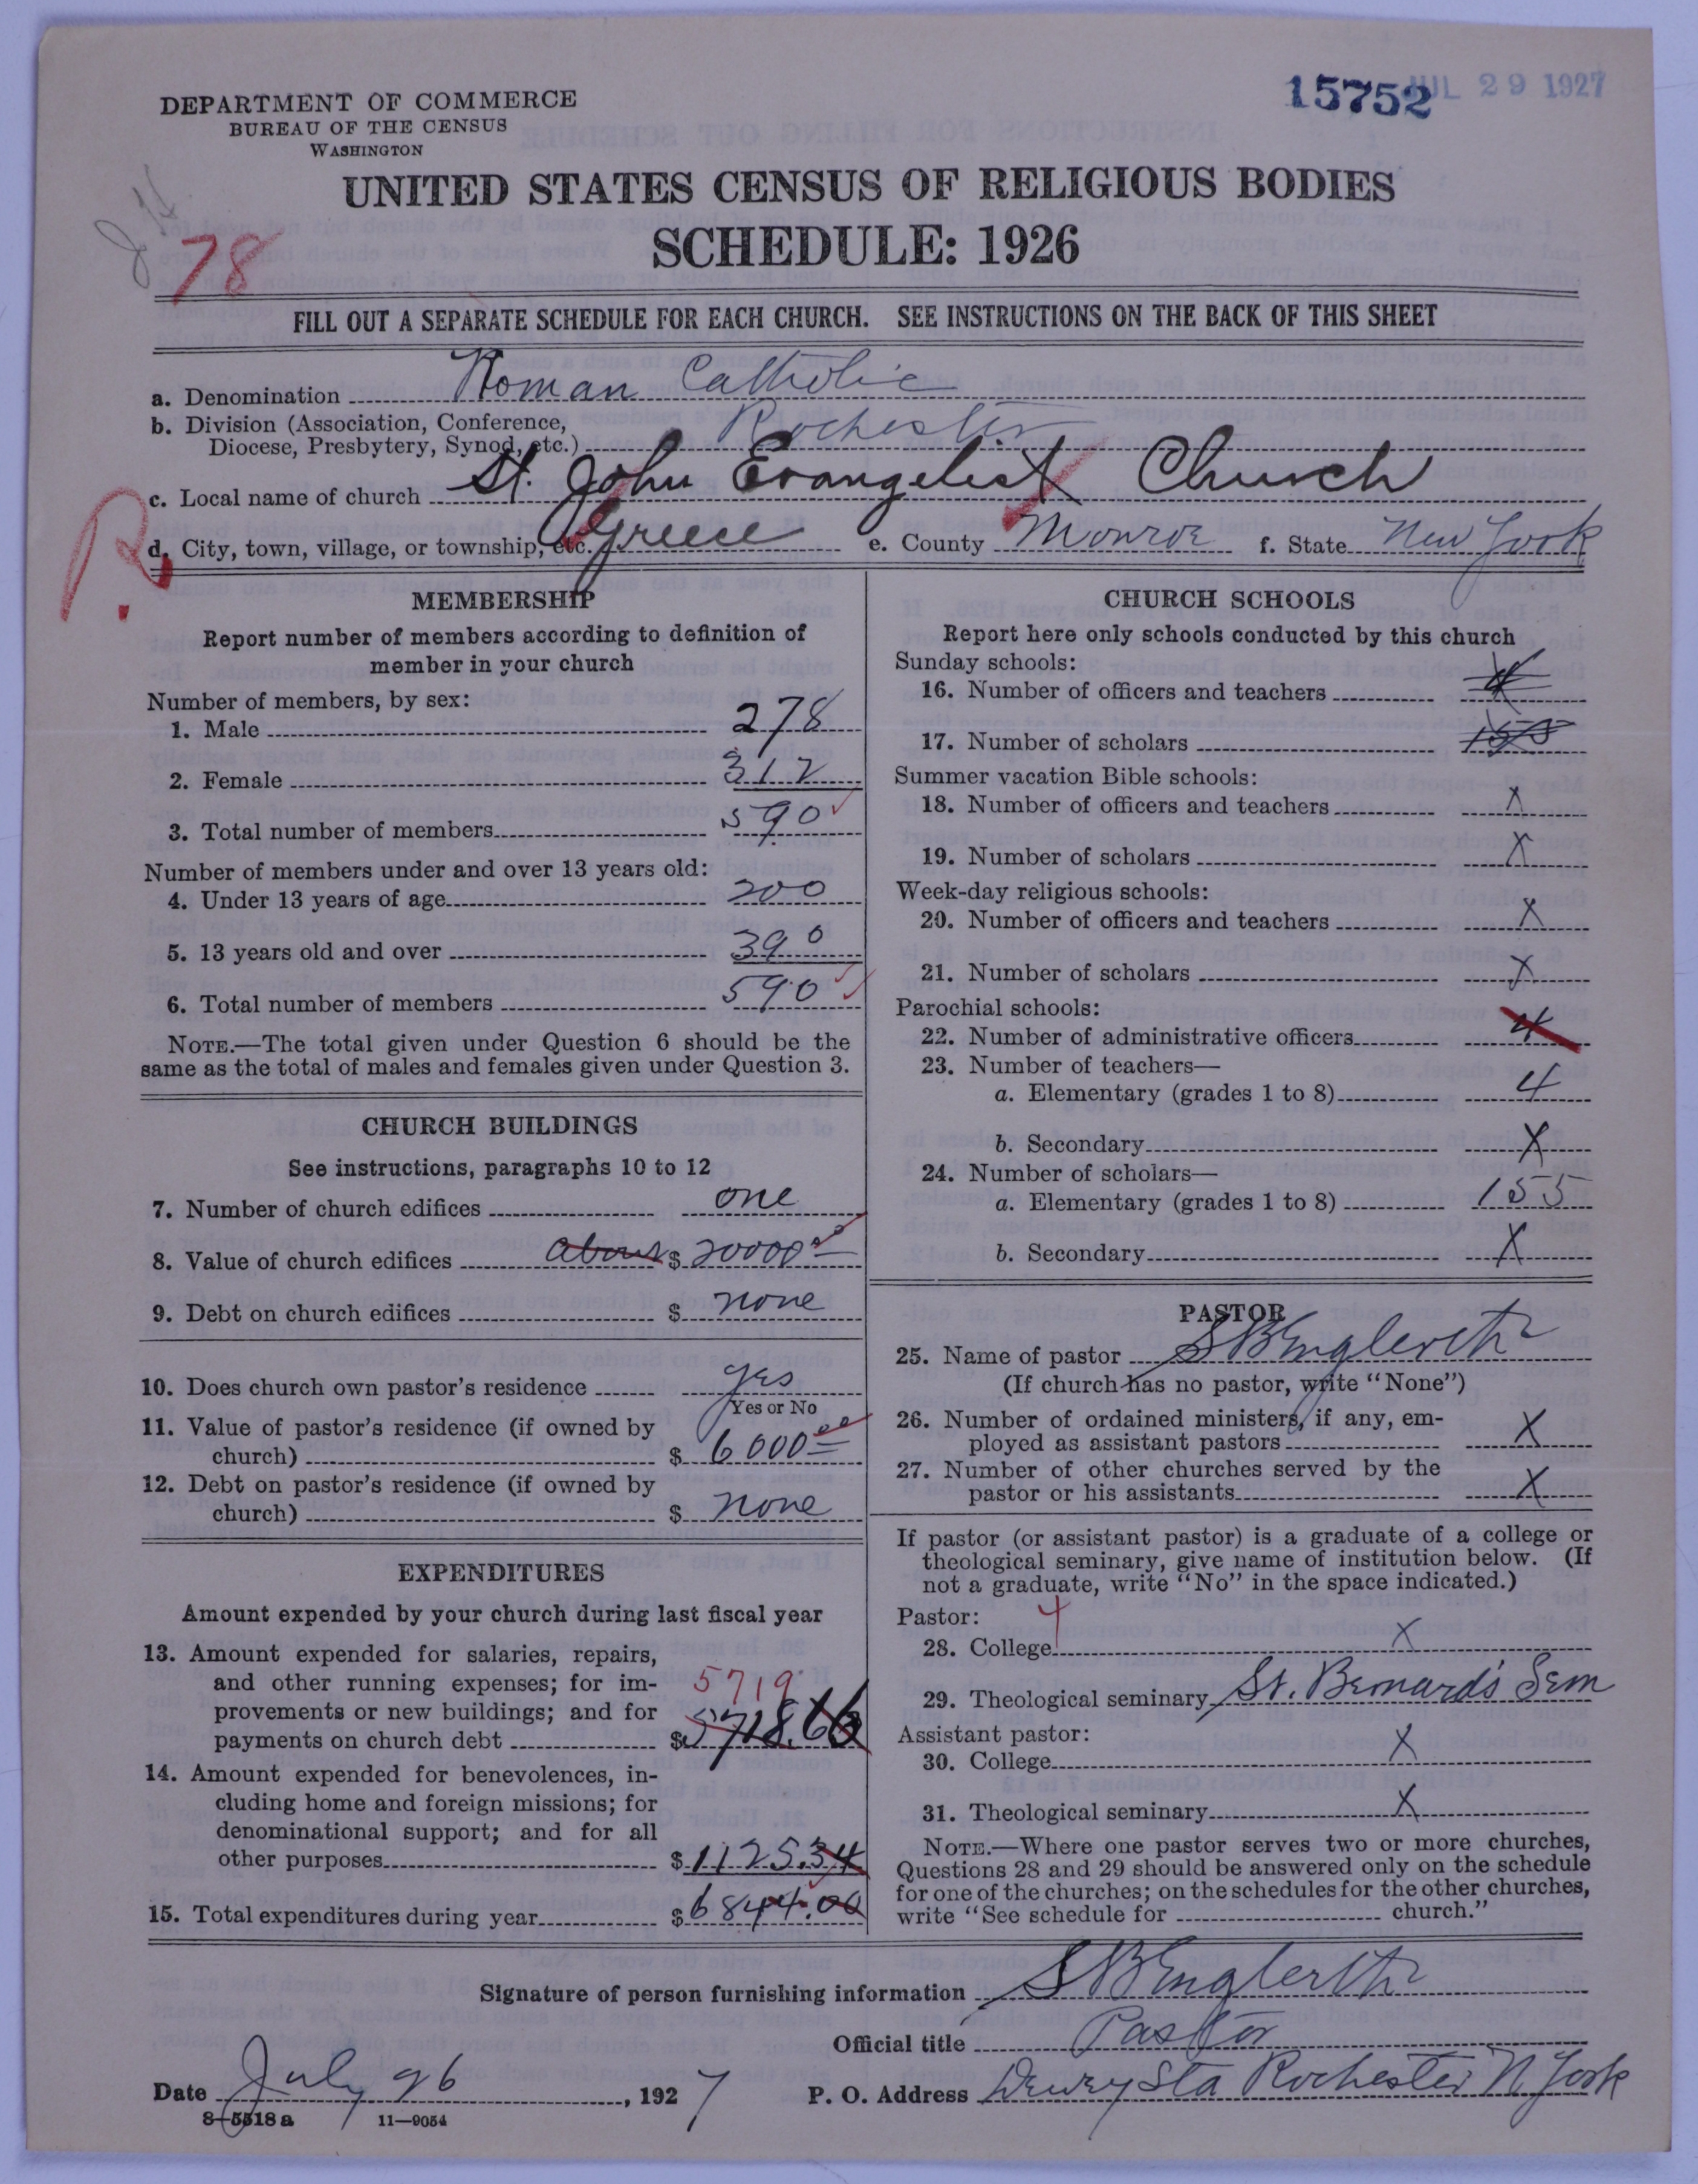 15752 JUL 29 1927
DEPARTMENT OF COMMERCE
BUREAU OF THE CENSUS
WASHINGTON
UNITED STATES CENSUS OF RELIGIOUS BODIES
SCHEDULE: 1926
78
FILL OUT A SEPARATE SCHEDULE FOR EACH CHURCH. SEE INSTRUCTIONS ON THE BACK OF THIS SHEET
a. Denomination Roman Catholic
b. Division (Association, Conference,
Diocese, Presbytery, Synod, etc.) Rochester
c. Local name of church St. John Evangelist Church
R.
d. City, town, village, or township, etc. Greece e. County Monroe f. State New York
MEMBERSHIP
Report number of members according to definition of
member in your church
Number of members, by sex:
1. Male 278
2. Female 312
3. Total number of members 590
Number of members under and over 13 years old:
4. Under 13 years of age 200
5. 13 years old and over 390
6. Total number of members 590
NOTE.—The total given under Question 6 should be the
same as the total of males and females given under Question 3.
CHURCH BUILDINGS
See instructions, paragraphs 10 to 12
7. Number of church edifices one
8. Value of church edifices about $ 20000 00
9. Debt on church edifices $ none
10. Does church own pastor's residence yes
Yes or No
11. Value of pastor's residence (if owned by
church) $ 6000 00
12. Debt on pastor's residence (if owned by
church) $ none
EXPENDITURES
Amount expended by your church during last fiscal year
13. Amount expended for salaries, repairs,
and other running expenses; for im-
5719
provements or new buildings; and for
payments on church debt $ 5718.66
14. Amount expended for benevolences, in-
cluding home and foreign missions; for
denominational support; and for all
other purposes $ 1125.34
15. Total expenditures during year $ 6844.00
CHURCH SCHOOLS
Report here only schools conducted by this church
Sunday schools:
16. Number of officers and teachers 4
17. Number of scholars 155
Summer vacation Bible schools:
18. Number of officers and teachers X
19. Number of scholars X
Week-day religious schools:
20. Number of officers and teachers X
21. Number of scholars X
Parochial schools:
22. Number of administrative officers 4
23. Number of teachers—
a. Elementary (grades 1 to 8) 4
b. Secondary X
24. Number of scholars—
a. Elementary (grades 1 to 8) 155
b. Secondary X
PASTOR
25. Name of pastor S B Englerth
(If church has no pastor, write "None")
26. Number of ordained ministers, if any, em-
ployed as assistant pastors X
27. Number of other churches served by the
pastor or his assistants X
If pastor (or assistant pastor) is a graduate of a college or
theological seminary, give name of institution below. (If
not a graduate, write "No" in the space indicated.)
Pastor:
28. College X
29. Theological seminary St. Bernard's Sem
Assistant pastor:
30. College X
31. Theological seminary X
NOTE.—Where one pastor serves two or more churches,
Questions 28 and 29 should be answered only on the schedule
for one of the churches; on the schedules for the other churches,
write "See schedule for church."
Signature of person furnishing information S B Englerth
Official title Pastor
Date July 26, 1927 P. O. Address Dewey Sta Rochester N York
8-5518a 11—9054